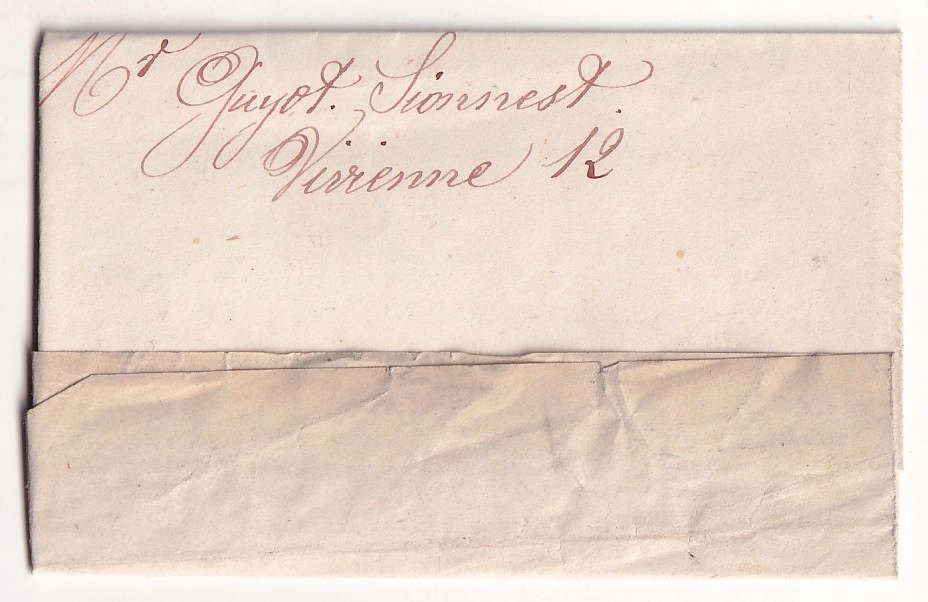 Mr Guyot. Sionnest.
Vivienne 12